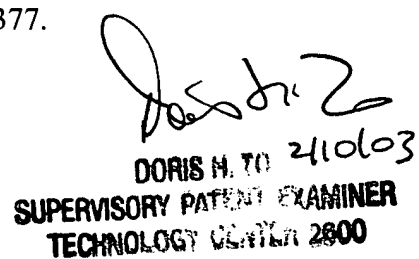 377.
Doris H. To
2/10/03
DORIS H. TO
SUPERVISORY PATENT EXAMINER
TECHNOLOGY CENTER 2600